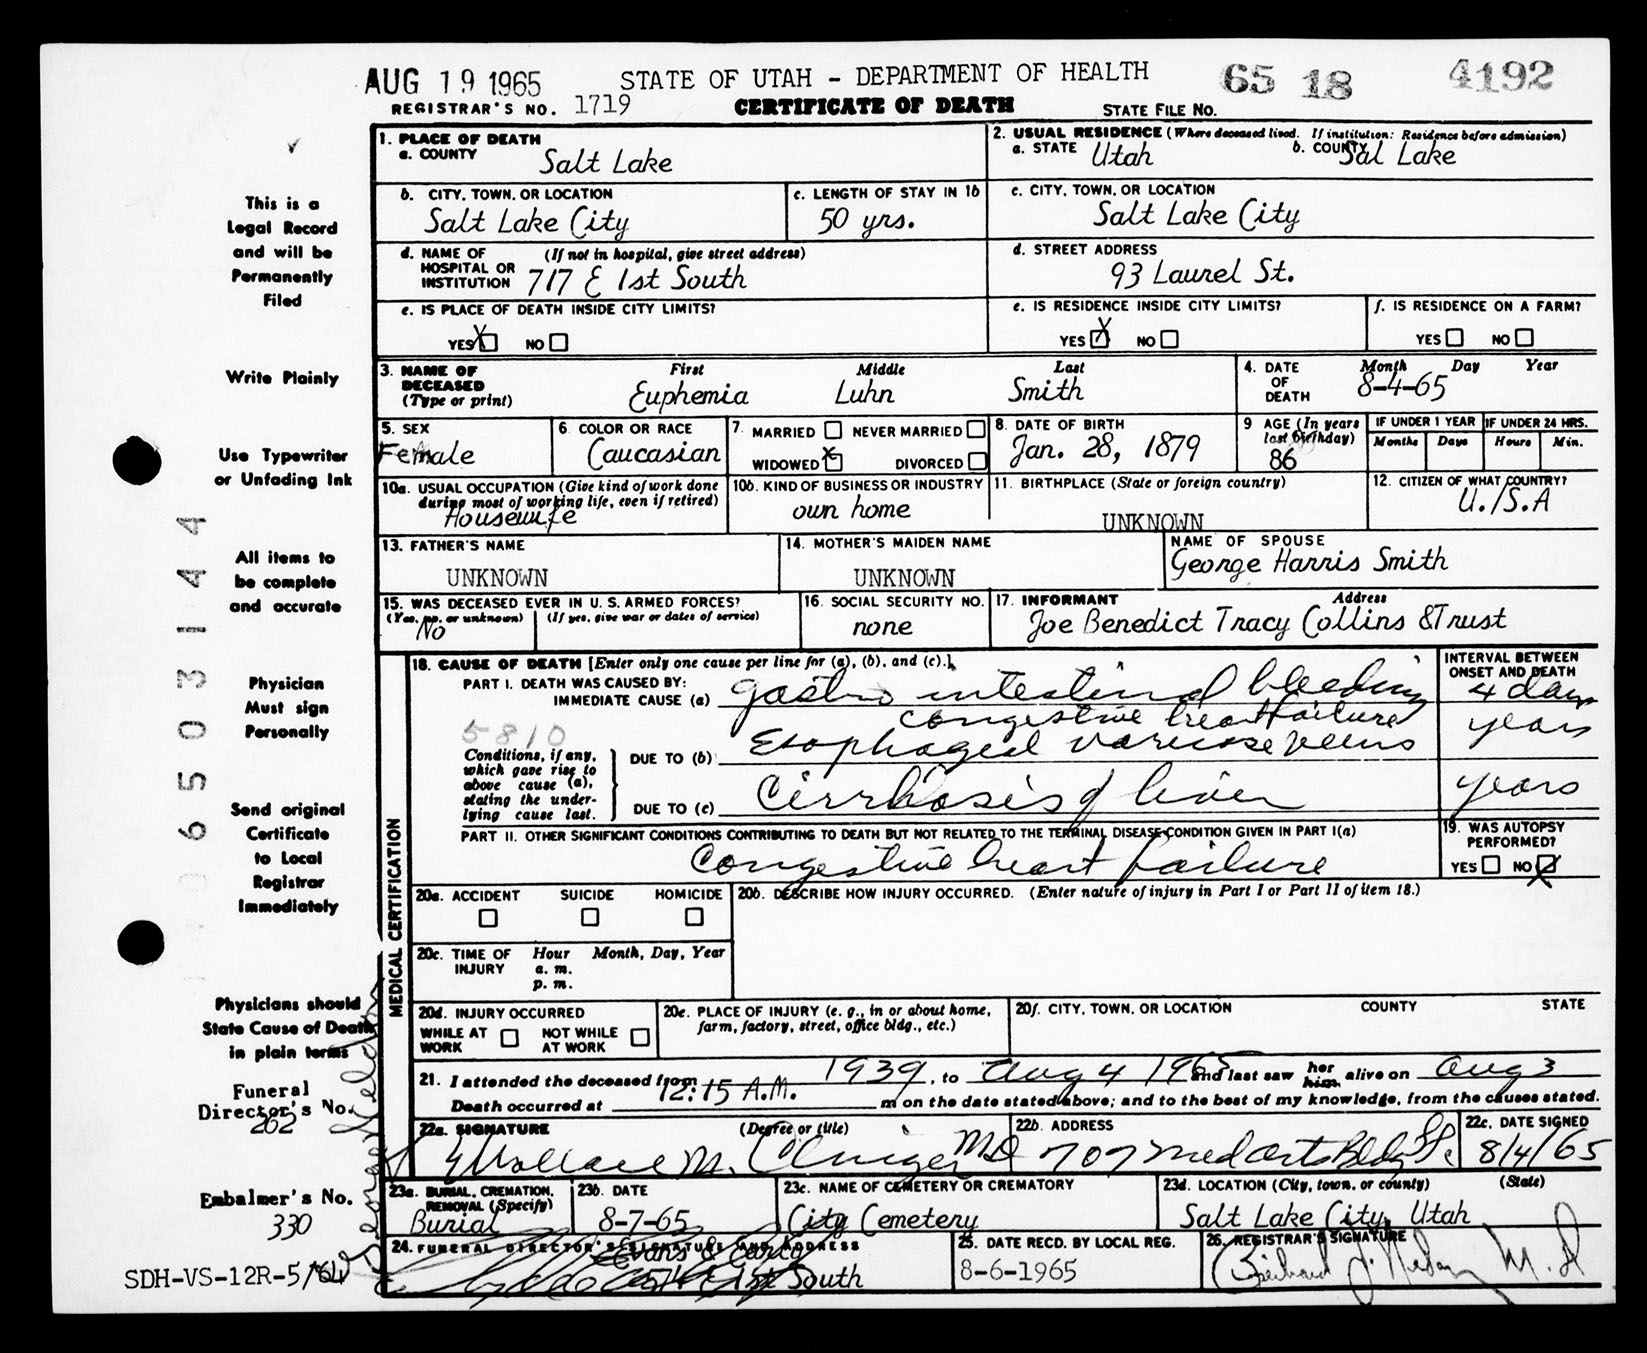 AUG 19 1965 STATE OF UTAH - DEPARTMENT OF HEALTH 65 18 4192
REGISTRAR'S NO. 1719 CERTIFICATE OF DEATH STATE FILE NO.
1. PLACE OF DEATH
a. COUNTY Salt Lake
2. USUAL RESIDENCE (Where deceased lived. If institution: Residence before admission)
a. STATE Utah b. COUNTY Sal Lake
b. CITY, TOWN, OR LOCATION
Salt Lake City
c. LENGTH OF STAY IN 1b
50 yrs.
c. CITY, TOWN, OR LOCATION
Salt Lake City
d. NAME OF (If not in hospital, give street address)
HOSPITAL OR
INSTITUTION 717 E 1st South
d. STREET ADDRESS
93 Laurel St.
e. IS PLACE OF DEATH INSIDE CITY LIMITS?
YES X NO
e. IS RESIDENCE INSIDE CITY LIMITS?
YES X NO
f. IS RESIDENCE ON A FARM?
YES NO
3. NAME OF First Middle Last
DECEASED
(Type or print) Euphemia Luhn Smith
4. DATE Month Day Year
OF
DEATH 8-4-65
5. SEX
Female
6. COLOR OR RACE
Caucasian
7. MARRIED NEVER MARRIED
WIDOWED X DIVORCED
8. DATE OF BIRTH
Jan. 28, 1879
9 AGE (In years
last birthday)
86
IF UNDER 1 YEAR IF UNDER 24 HRS.
Months Days Hours Min.
10a. USUAL OCCUPATION (Give kind of work done
during most of working life, even if retired)
Housewife
10b. KIND OF BUSINESS OR INDUSTRY
own home
11. BIRTHPLACE (State or foreign country)
UNKNOWN
12. CITIZEN OF WHAT COUNTRY?
U.S.A
13. FATHER'S NAME
UNKNOWN
14. MOTHER'S MAIDEN NAME
UNKNOWN
NAME OF SPOUSE
George Harris Smith
15. WAS DECEASED EVER IN U. S. ARMED FORCES?
(Yes, no, or unknown) (If yes, give war or dates of service)
No
16. SOCIAL SECURITY NO.
none
17. INFORMANT Address
Joe Benedict Tracy Collins &Trust
18. CAUSE OF DEATH [Enter only one cause per line for (a), (b), and (c).]
PART I. DEATH WAS CAUSED BY:
IMMEDIATE CAUSE (a) gastro intestinal bleeding
congestive heart failure
5810
Conditions, if any,
which gave rise to
above cause (a),
stating the under-
lying cause last.
DUE TO (b) Esophageal varicose veins
DUE TO (c) Cirrhosis of liver
INTERVAL BETWEEN
ONSET AND DEATH
4 days
years
years
PART II. OTHER SIGNIFICANT CONDITIONS CONTRIBUTING TO DEATH BUT NOT RELATED TO THE TERMINAL DISEASE CONDITION GIVEN IN PART I(a)
Congestive heart failure
19. WAS AUTOPSY
PERFORMED?
YES NO X
20a. ACCIDENT SUICIDE HOMICIDE
20b. DESCRIBE HOW INJURY OCCURRED. (Enter nature of injury in Part I or Part II of item 18.)
20c. TIME OF Hour Month, Day, Year
INJURY a. m.
p. m.
20d. INJURY OCCURRED
WHILE AT NOT WHILE
WORK AT WORK
20e. PLACE OF INJURY (e. g., in or about home,
farm, factory, street, office bldg., etc.)
20f. CITY, TOWN, OR LOCATION COUNTY STATE
21. I attended the deceased from 1939, to Aug 4 1965 and last saw her him alive on Aug 3
Death occurred at 12:15 A.M. m on the date stated above; and to the best of my knowledge, from the causes stated.
22a. SIGNATURE (Degree or title)
Wallace M. M.D
22b. ADDRESS
707 Med Arts Bldg
22c. DATE SIGNED
8/4/65
23a. BURIAL, CREMATION,
REMOVAL (Specify)
Burial
23b. DATE
8-7-65
23c. NAME OF CEMETERY OR CREMATORY
City Cemetery
23d. LOCATION (City, town, or county) (State)
Salt Lake City, Utah
24. FUNERAL DIRECTOR'S SIGNATURE AND ADDRESS
Evans & Early
574 E 1st South
25. DATE RECD. BY LOCAL REG.
8-6-1965
26. REGISTRAR'S SIGNATURE
M.D
MEDICAL CERTIFICATION
This is a
Legal Record
and will be
Permanently
Filed
Write Plainly
Use Typewriter
or Unfading Ink
All items to
be complete
and accurate
Physician
Must sign
Personally
Send original
Certificate
to Local
Registrar
Immediately
Physicians should
State Cause of Death
in plain terms
Funeral
Director's No.
262
Embalmer's No.
330
SDH-VS-12R-5/64
06503144